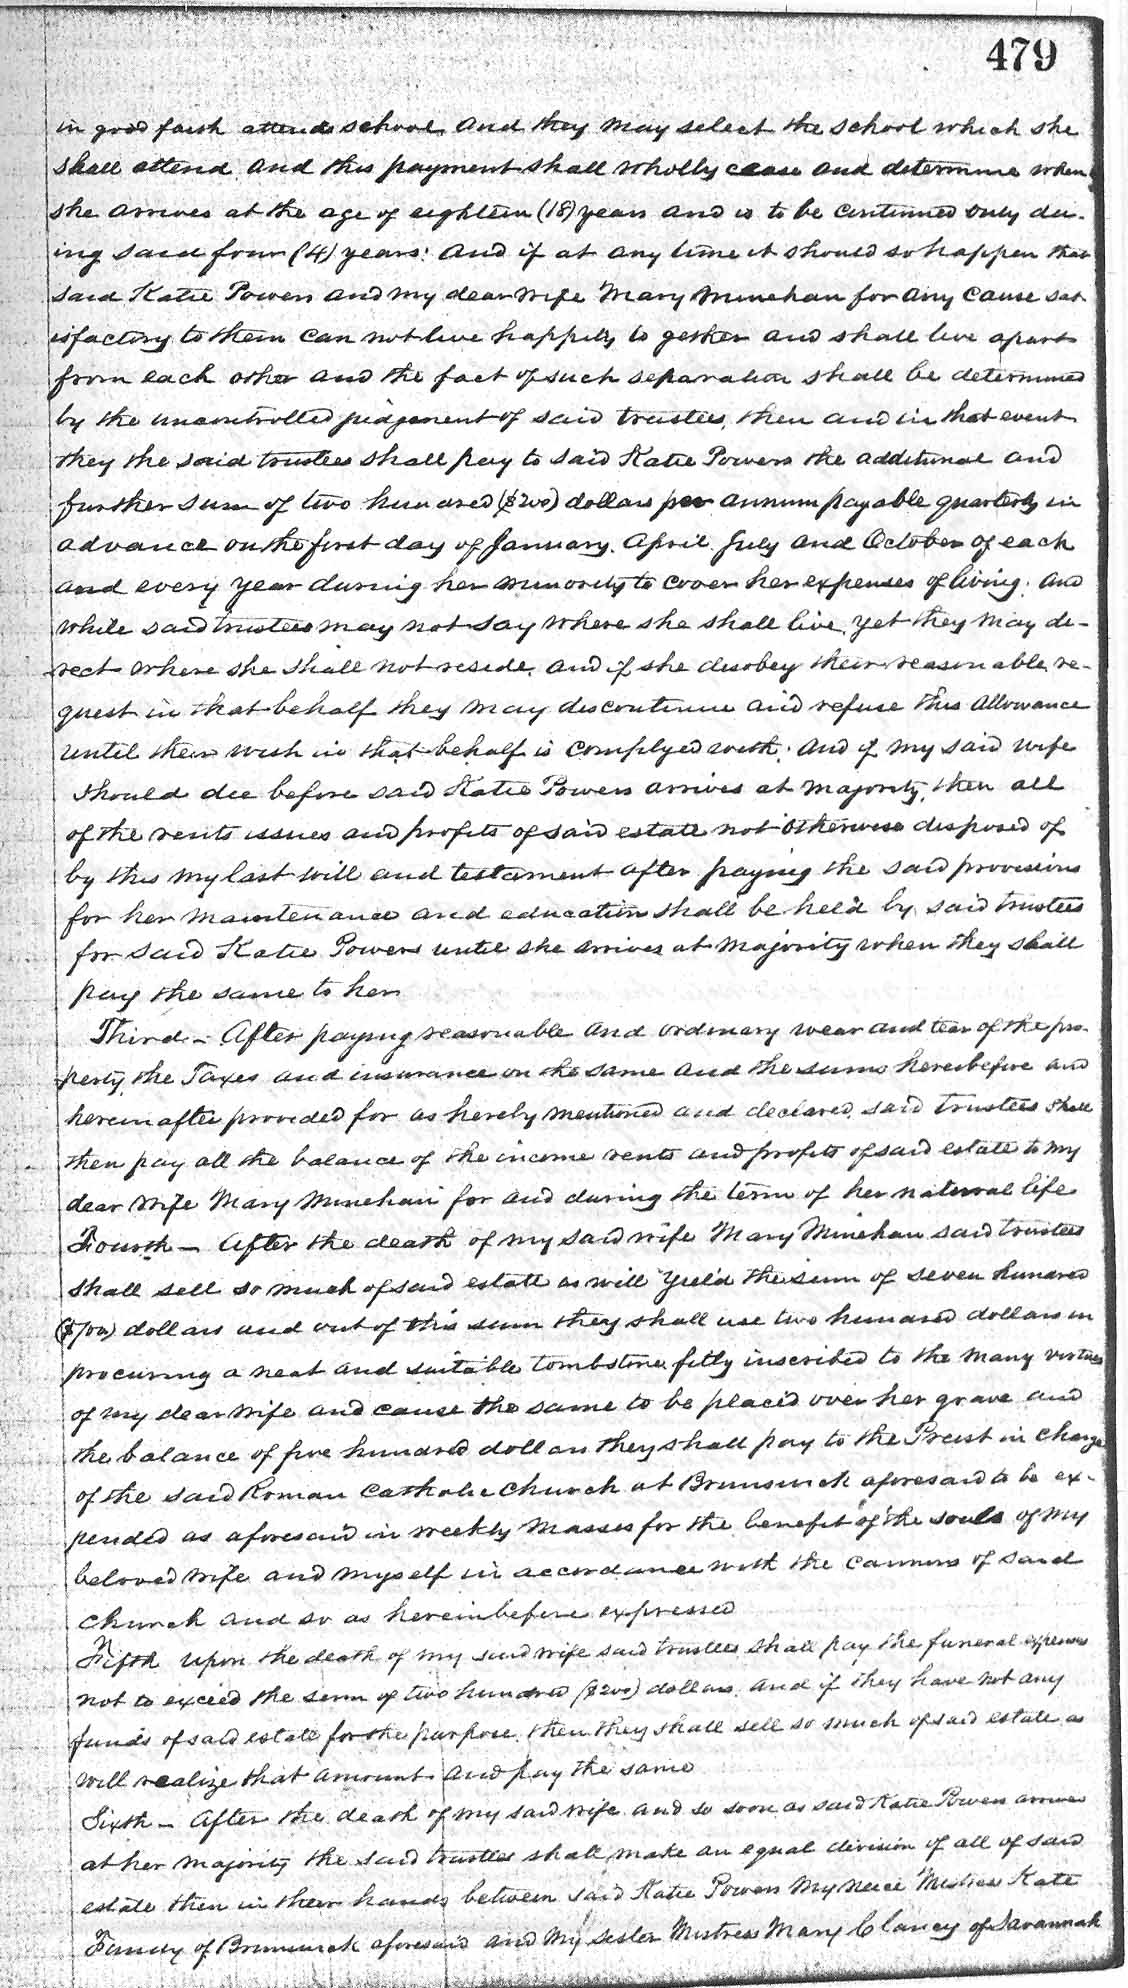 479
in good faith attend school and they may select the school which she
shall attend and this payment shall wholly cease and determine when
she arrives at the age of eighteen (18) years and is to be continued only du-
ing said four (4) years: And if at any time it should so happen that
said Katie Powers and my dear wife Mary Minehan for any cause sat
isfactory to them can not live happily to gether and shall live apart
from each other and the fact of such separation shall be determined
by the uncontrolled judgement of said trustees, then and in that event
they the said trustees shall pay to said Katie Powers the additional and
further sum of two hundred ($200) dollars per annum payable quarterly in
advance on the first day of January. April. July and October of each
and every year during her minority to cover her expenses of living. And
while said trustees may not say where she shall live, yet they may di-
rect where she shall not reside. and if she disobey their reasonable re-
quest in that behalf they may discontinue and refuse this allowance
until their wish in that behalf is complyed with. And if my said wife
should die before said Katie Powers arrives at majority, then all
of the rents issues and profits of said estate not otherwise disposed of
by this my last will and testament after paying the said provisions
for her maintenance and education shall be held by said trustees
for said Katie Powers until she arrives at majority when they shall
pay the same to her
Third - After paying reasonable and ordinary wear and tear of the pro-
perty, the Taxes and insurance on the same and the sums hereinbefore and
hereinafter provided for as hereby mentioned and declared, said trustees shall
then pay all the balance of the income rents and profits of said estate to my
dear wife Mary Minehan for and during the term of her natural life
Fourth - After the death of my said wife Mary Minehan said trustees
shall sell so much of said estate as will yield the sum of seven hundred
($700) dollars and out of this sum they shall use two hundred dollars in
procuring a neat and suitable tombstone fitly inscribed to the many virtues
of my dear wife and cause the same to be placed over her grave and
the balance of five hundred dollars they shall pay to the Preist in charge
of the said Roman Catholic Church at Brunswick aforesaid to be ex-
pended as aforesaid in weekly masses for the benefit of the souls of my
beloved wife and myself in accordance with the cannons of said
church and so as hereinbefore expressed
Fifth Upon the death of my said wife said trustees shall pay the funeral expenses
not to exceed the sum of two hundred ($200) dollars. and if they have not any
funds of said estate for the purpose, then they shall sell so much of said estate as
will realize that amount and pay the same
Sixth - After the death of my said wife and so soon as said Katie Powers arrives
at her majority the said trustees shall make an equal division of all of said
estate then in their hands between said Katie Powers my neice Mistress Kate
Fundy of Brunswick aforesaid and my sister Mistress Mary Clancy of Savannah